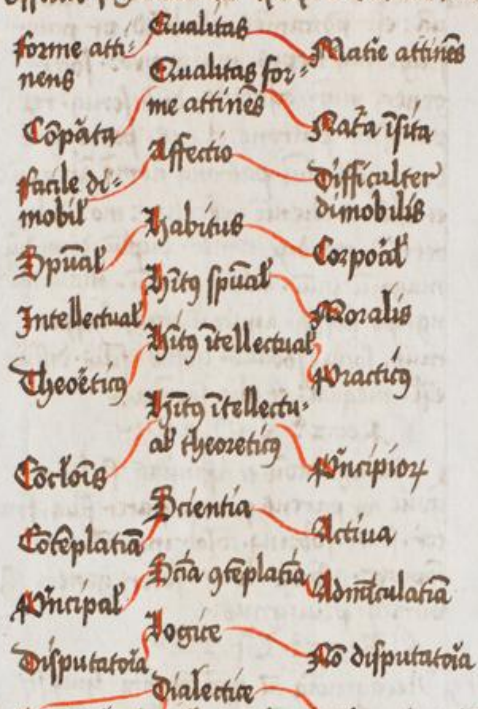 Qualitas
forme atti=
nens
Matie attinēs
Qualitas for=
me attinēs
Cōpāta
Nata īsita
Affectio
facile di=
mobil
Difficulter
dimobilis
Habitus
Spūal
Corpoal
Hītꝯ spūal
Intellectual
Moralis
Hītꝯ ītellectual
Theoēticꝯ
Practicꝯ
Hītꝯ ītellectu=
al theoreticꝯ
Cōclōis
Pⁱncipioꝝ
Scientia
Cōtēplatīa
Actiua
Scīa ꝯtēplatīa
Pⁱncipal
Adminiculatīa
Logice
Disputatoīa
Nō disputatoīa
Dialectice